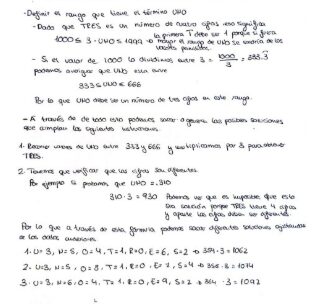 - Definir el rango que tiene el término UNO
- Dado que TRES es un número de cuatro cifras eso significa
la primera T debe ser 1 porque si fuera
1000 ≤ 3 · UNO ≤ 1999 → mayor el rango de UNO se saldría de los
valores
- Si el valor de 1000 lo dividimos entre 3 = 1000/3 = 333.3
podemos averiguar que UNO está entre
333 ≤ UNO ≤ 666
Por lo que UNO debe ser un número de tres cifras en este rango.
- A través de todo esto podemos sacar o generar las posibles soluciones
que cumplan las siguientes
1. Recorrer valores de UNO entre 333 y 666 y multiplicarlos por 3 para obtener
TRES.
2. Tenemos que verificar que las cifras sean diferentes.
Por ejemplo si ponemos que UNO = 310
310 · 3 = 930 Podemos ver que es imposible que esta
sea solución porque TRES tiene 4 cifras
y aparte las cifras deben ser diferentes.
Por lo que a través de esta fórmula podemos sacar diferentes soluciones
de los datos anteriores
1. U=3, N=5, O=4, T=1, R=0, E=6, S=2 → 354·3 = 1062
2. U=3, N=5, O=8, T=1, R=0, E=7, S=4 → 358·3 = 1074
3. U=3, N=6, O=4, T=1, R=0, E=9, S=2 → 364·3 = 1092